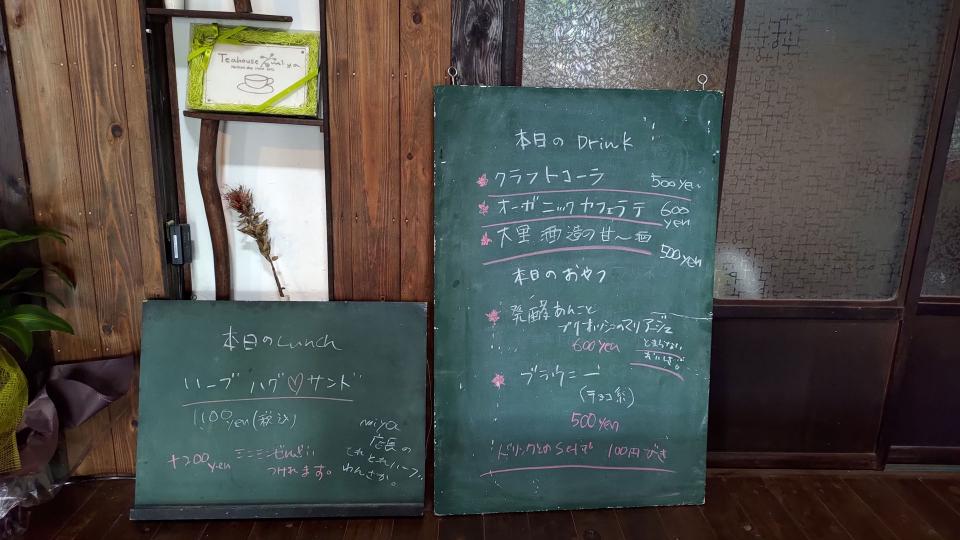 Teahouse
本日のLunch
ハーブ ハグ♡サンド
1100yen(税込)
+200yen ミニミニぜんざい
つけれます。
miya
店長の
とれとれハーブ
わんさか。
本日のDrink
クラフトコーラ 500yen
オーガニックカフェラテ 600
yen
大黒酒造の甘〜酒 500yen
本日のおやつ
発酵あんこと
ブリオッシュのマリアージュ
600yen とまらない
おいしさ。
ブラウニー
(チョコ系)
500yen
ドリンクとのSetで 100円びき